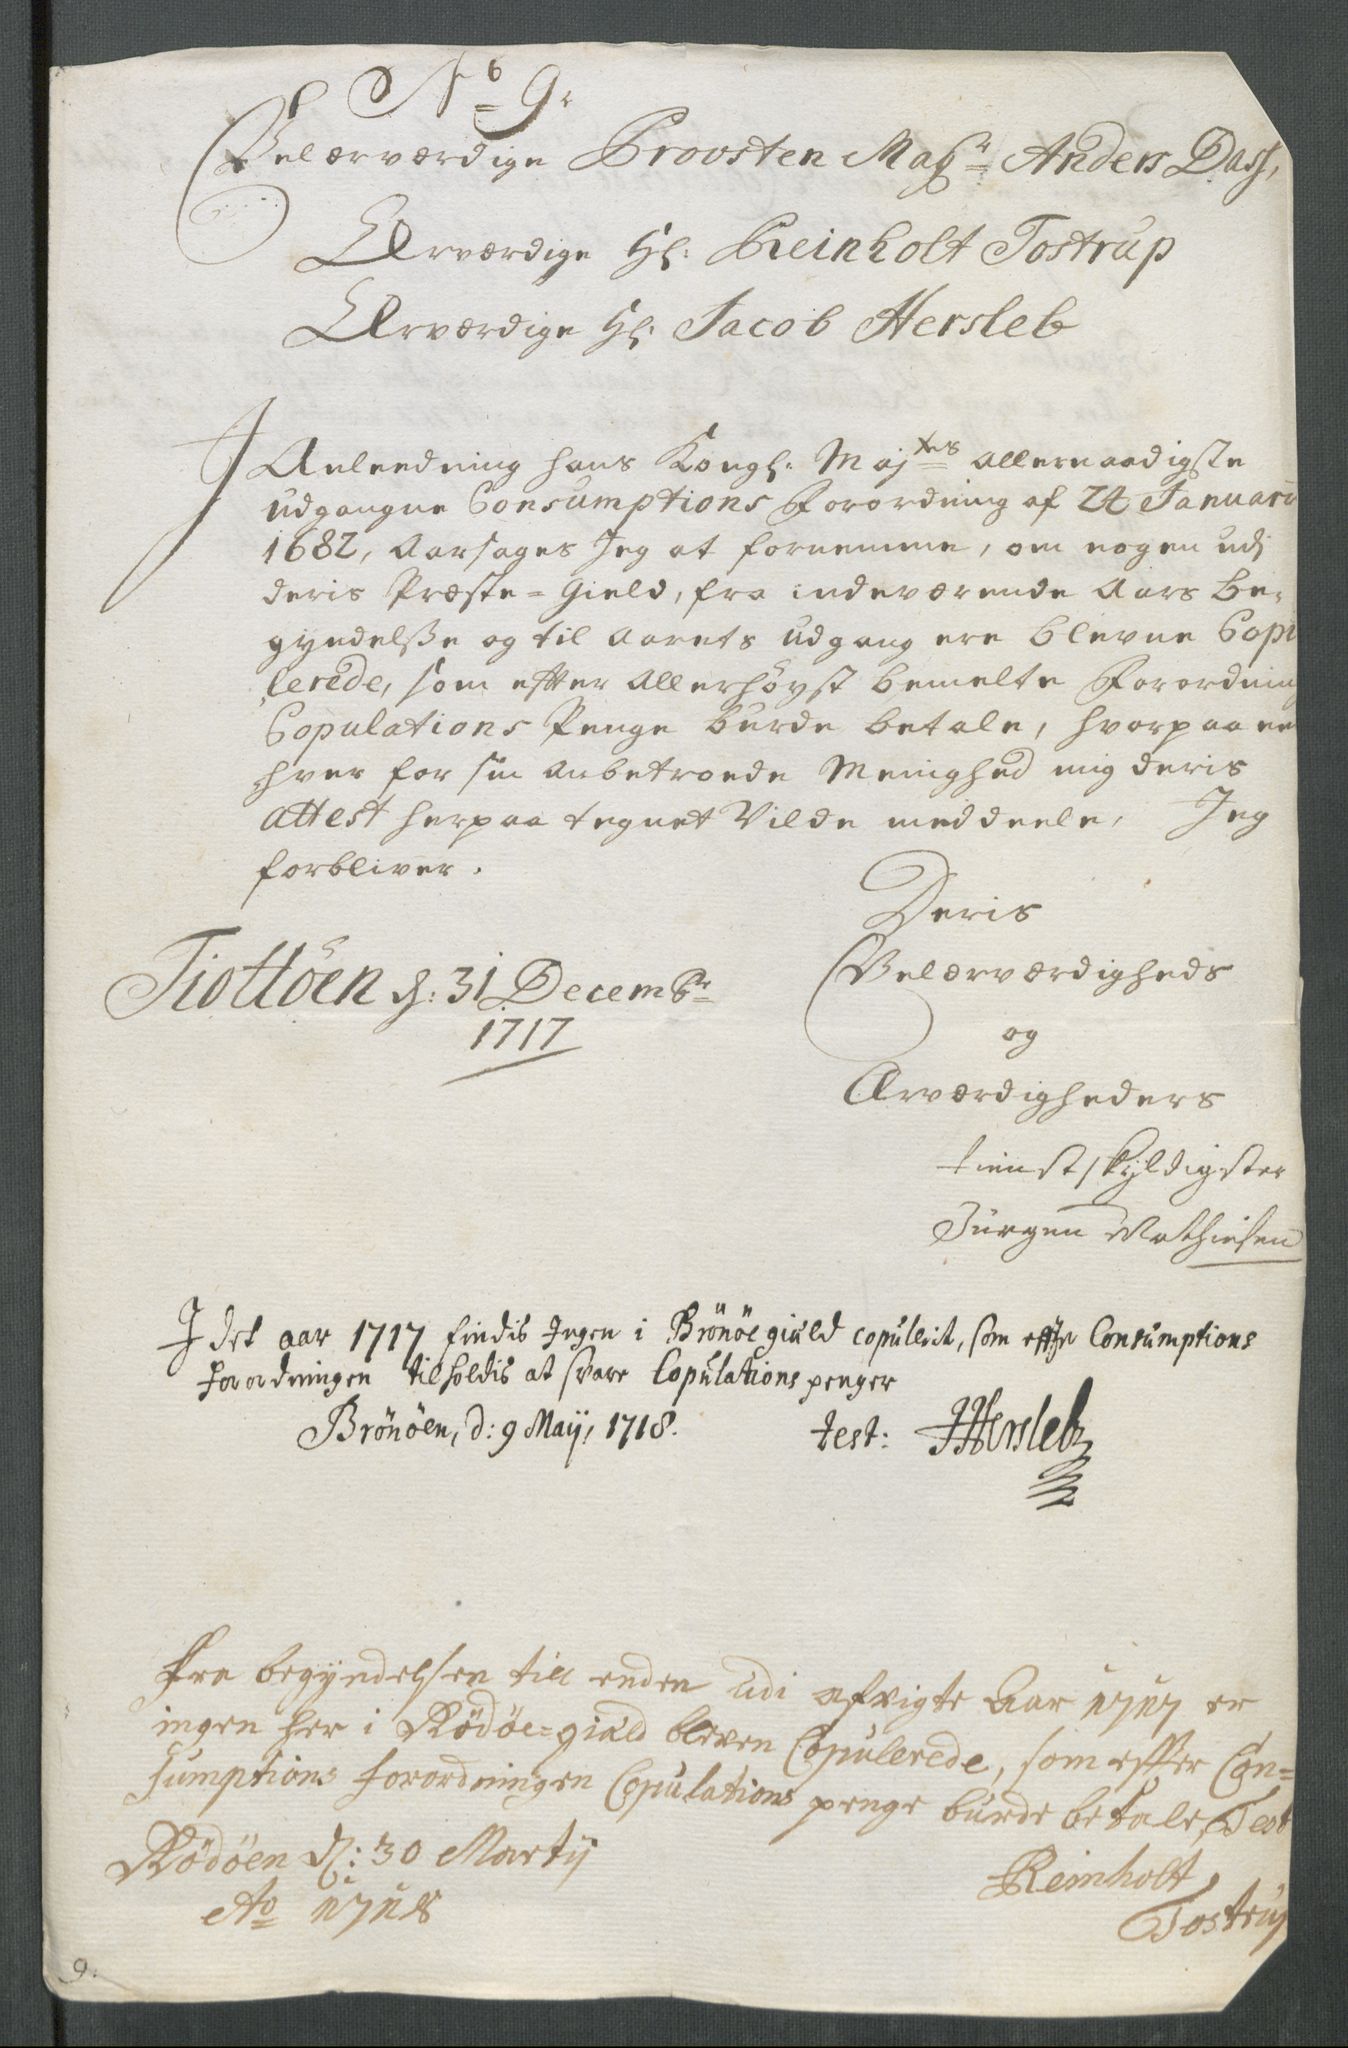 No 9.
Velærværdige Provsten Magr Anders Dass,
Ærværdige Hr: Reinholt Tostrup
Ærværdige Hr: Jacob Hersleb
I Anleedning hans Kongl: Majtes allernaadigste
udgangne Consumptions Forordning af 24 Januarii
1682, Aarsages Jeg at fornemme, om nogen udj
deris Præste=Gield, fra indeværende Aars be-
gyndelße og til Aarets Udgang ere blevne Copu
lerede, som efter Allerhöyst bemelte Forordning
Copulations Penge burde betale, hvorpaa en
hver for sin anbetroede Menighed mig deris
attest herpaa tegnet Vilde meddeele, Jeg
forbliver.
Deris
Velærværdigheds
og
Ærværdigheders
tienstskyldigster
Jürgen Mathiesen
Tiottöen d: 31 Decembr
1717
I det aar 1717 findis Ingen i Brönöe gield copulerit, som effter Consumptions
forordningen tilholdis at svare Copulations penger
Brönöen, d: 9 Maij, 1718.
test: JHersleb
Fra begyndelsen till enden udi afvigte Aar 1717 er
ingen her i Rödöe=gield bleven Copulerede, som effter Con=
sumptions forordningen Copulations penge burde betale, Test
Rödöen d: 30 Martij
Ao 1718
Reinholt
Tostrup
9.